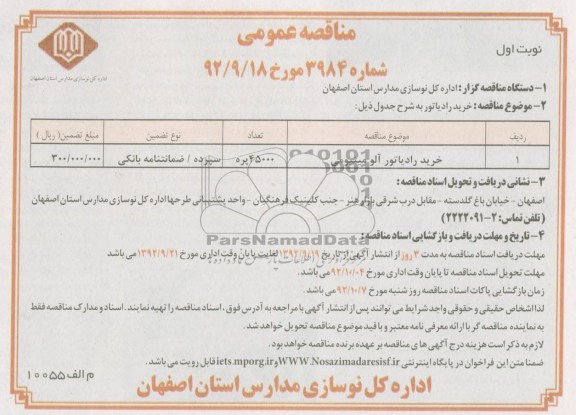 مناقصه عمومی
نوبت اول
شماره ۳۹۸۴ مورخ ۹۲/۹/۱۸
اداره کل نوسازی مدارس استان اصفهان
۱- دستگاه مناقصه گزار: اداره کل نوسازی مدارس استان اصفهان
۲- موضوع مناقصه: خرید رادیاتور به شرح جدول ذیل:
ردیف موضوع مناقصه تعداد نوع تضمین مبلغ تضمین( ریال )
۱ خرید رادیاتور آلومینیومی ۴۵۰۰۰پره سپرده / ضمانتنامه بانکی ۳۰۰/۰۰۰/۰۰۰
۳- نشانی دریافت و تحویل اسناد مناقصه:
اصفهان - خیابان باغ گلدسته - مقابل درب شرقی بازار هنر - جنب کلینیک فرهنگیان - واحد پشتیبانی طرحها اداره کل نوسازی مدارس استان اصفهان
(تلفن تماس: ۲-۲۲۲۲۰۹۱)
۴- تاریخ و مهلت دریافت و بازگشایی اسناد مناقصه:
مهلت دریافت اسناد مناقصه به مدت ۳ روز از انتشار آگهی از تاریخ ۱۳۹۲/۹/۱۹ لغایت پایان وقت اداری مورخ ۱۳۹۲/۹/۲۱ می باشد.
مهلت تحویل اسناد مناقصه تا پایان وقت اداری مورخ ۹۲/۱۰/۰۴ می باشد.
زمان بازگشایی پاکات اسناد مناقصه روز شنبه مورخ ۹۲/۱۰/۷ می باشد.
لذا اشخاص حقیقی و حقوقی واجد شرایط می توانند پس از انتشار آگهی با مراجعه به آدرس فوق، اسناد مناقصه را تهیه نمایند. اسناد و مدارک مناقصه فقط
به نماینده مناقصه گر با ارائه معرفی نامه معتبر و با قید موضوع مناقصه تحویل خواهد شد.
لازم به ذکر است هزینه درج آگهی های مناقصه بر عهده برنده مناقصه خواهد بود.
ضمنا متن این فراخوان در پایگاه اینترنتی WWW.Nosazimadaresisf.ir و iets.mporg.ir قابل رویت می باشد.
اداره کل نوسازی مدارس استان اصفهان
م الف ۱۰۰۵۵
ParsNamadData